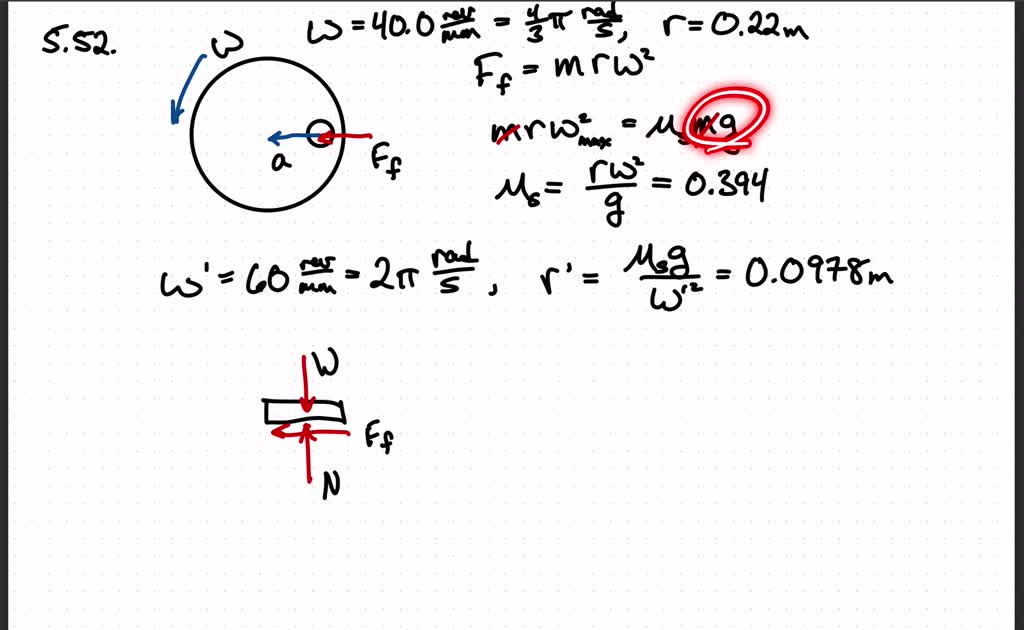 5.52.
ω
ω = 40.0 rev/min = 4/3 π rad/s, r = 0.22m
F_f = mrω²
mrω²_max = μ_s mg
a
F_f
μ_s = rω²/g = 0.394
ω' = 60 rev/min = 2π rad/s, r' = μ_s g/ω'² = 0.0978m
W
F_f
N